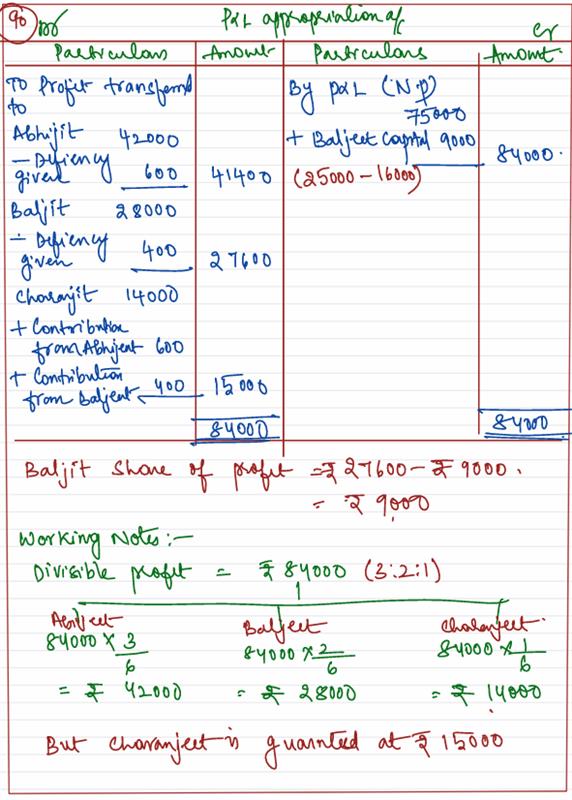 90
Dr P&L appropriation a/c Cr
Particulars Amount Particulars Amount
To Profit transferred
to
Abhijit 42000
- Defiency
given 600 41400
Baljit 28000
- Defiency
given 400 27600
Charanjit 14000
+ Contribution
from Abhijeet 600
+ Contribution
from Baljeet 400 15000
84000
By P&L (N.p)
75000
+ Baljeet Capital 9000
84000.
(25000 - 16000)
84000
Baljit Share of profit = ₹ 27600 - ₹ 9000.
= ₹ 9000
Working Notes:-
Divisible profit = ₹ 84000 (3:2:1)
Abhijeet
84000 × 3/6
= ₹ 42000
Baljeet
84000 × 2/6
= ₹ 28000
Charanjeet
84000 × 1/6
= ₹ 14000
But Charanjeet is guarnted at ₹ 15000